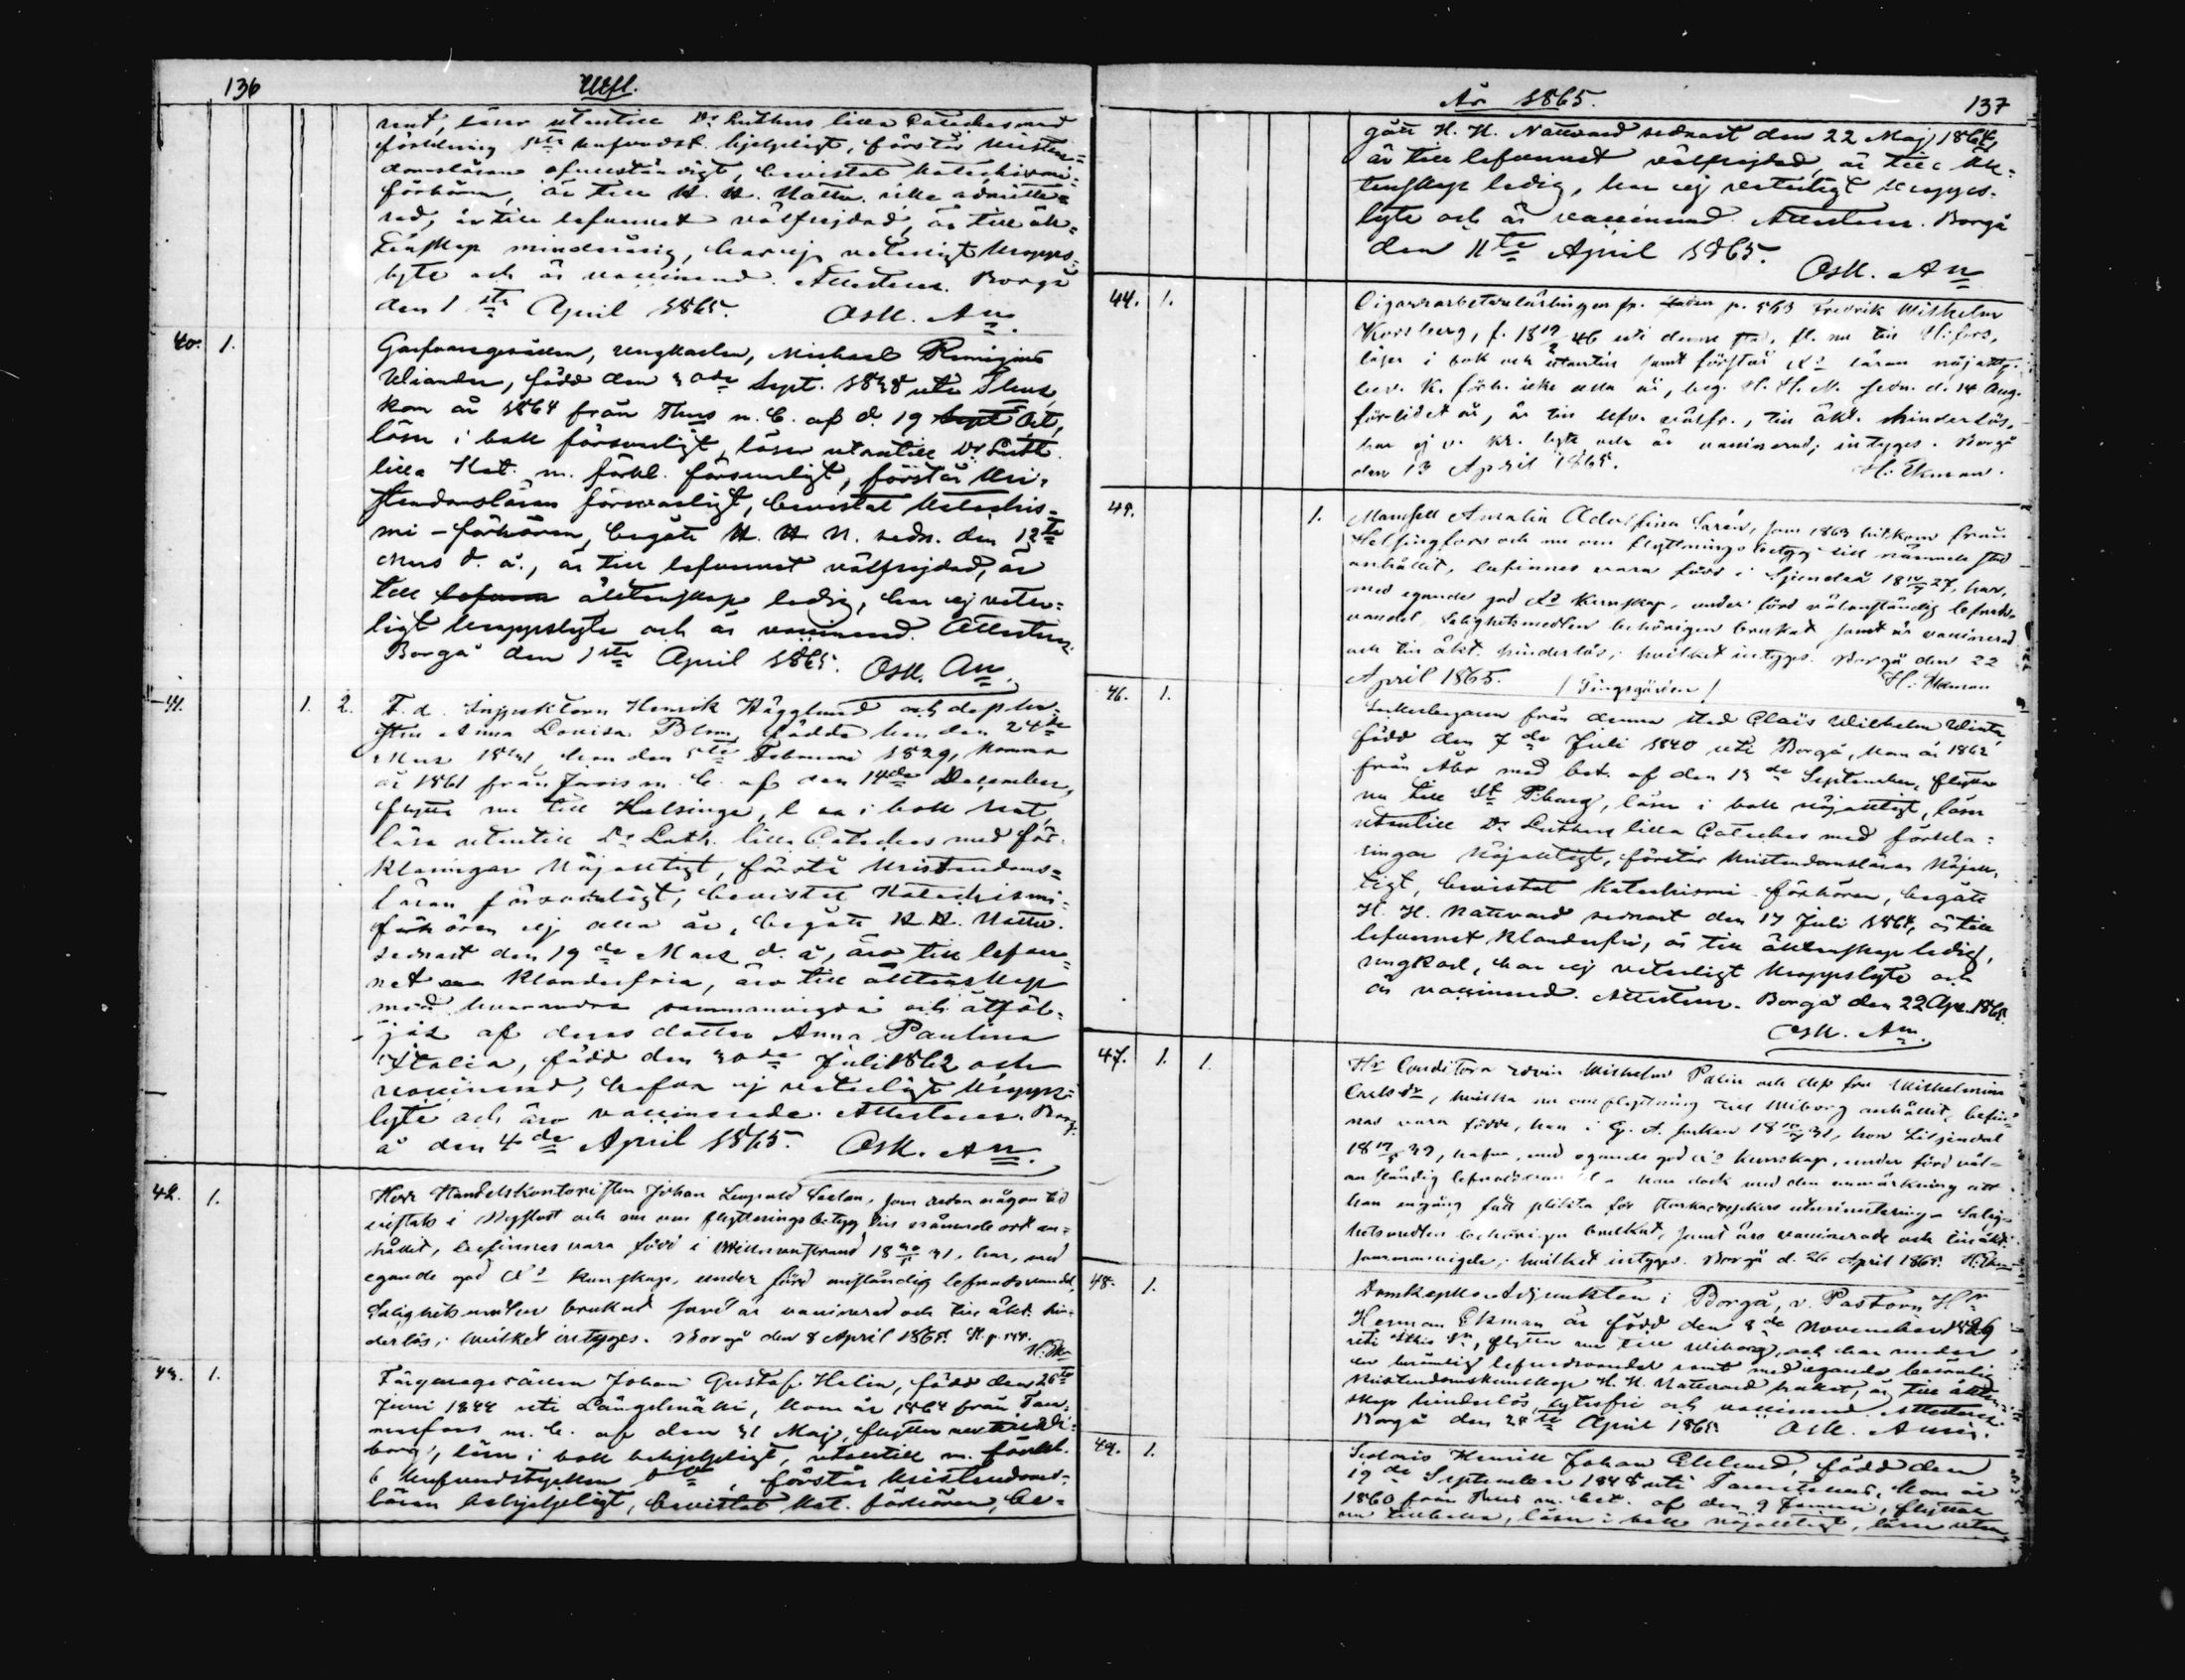 136
Utfl.
rent, läser utantill Dr Luthers lilla Cateches med
förklaring hjelpligt, förstår kristen=
domsläran ofullständigt, bevistat katechismi=
förhören, är till H. H. Nattv. icke admitte=
rad, är till lefvernet välfrejdad, är till äk=
tenskap minderårig, har ej veterligt kropps=
lyte och är vaccinerad. Attesteras. Borgå
den 1ste April 1865. Osk. An.
40. 1. Garfvaregesällen, ungkarlen, Michael Remigius
Uliander, född den 30de Sept. 1838 uti Thus,
kom år 1864 från Thus m. b. af d. 19 Sept Oct,
läser i bok försvarligt, läser utantill Dr Luth.
lilla Kat. m. förkl. försvarligt, förstår kri=
stendomsläran försvarligt, bevistat katechis=
mi-förhören, begått H. H. N. sedn. den 12te
Mars d. å., är till lefvernet välfrejdad, är
till lefvern äktenskap ledig, har ej veter=
ligt kroppslyte och är vaccinerad. Attesteras.
Borgå den 1ste April 1865. Osk. An.
41. 1. 2. F. d. Inspektoren Henrik Hägglund och dess hu=
stru Anna Lovisa Blom, födda han den 24de
Mars hon den 5te Februari 1829, komna
år 1861 från m. b. af den 14de December,
flytta nu till Helsinge, läsa i bok rent,
läsa utantill Dr Luth. lilla Cateches med för=
klaringar nöjaktigt, förstå kristendoms=
läran försvarligt, bevistat Katechismi=
förhören ej alla år, begått H. H. Nattv.
sednast den 19de Mars d. å, äro till lefver=
net klanderfria, äro till äktenskap
med hvarandra sammanvigda och åtföl=
jas af deras dotter Anna Paulina
Italia, född den 30de Juli 1862 och
vaccinerad, hafva ej veterligt kropps=
lyte och äro vaccinerade. Attesteras. Borg=
å den 4de April 1865. Osk. An.
42. 1. Herr Handelskontoristen Johan Leopold som redan någon tid
vistats i Nyslott och nu om flyttningsbetyg till nämnde ort an=
hållit, befinnes vara född i 31, har, med
egande god Xs kunskap, under förd anständig lefnadsvandel,
Salighetsmedlen brukat samt är vaccinerad och till äkt. hin=
derlös; hvilket intyges. Borgå den 8 April 1865.
43. 1. Färgaregesällen Johan Gustaf Helin, född den
Juni 1844 uti Längelmäki, kom år 1864 från Tam=
merfors m. b. af den 31 Maj, flyttar nu till Wi=
borg, läser i bok behjelpligt, utantill m. förkl.
6 hufvudstycken förstår kristendoms=
läran behjelpligt, bevistat kat. förhören, be=
År 1865.
137
gått H. H. Nattvard sednast den 22 Maj 1864,
är till lefvernet välfrejdad, är till äk=
tenskap ledig, har ej veterligt kropps=
lyte och är vaccinerad. Attesteras. Borgå
den 11te April 1865. Osk. An
44. 1. Cigarrarbetarelärlingen fr. p. 563 Fredrik Wilhelm
Korsberg, f. 46 uti denne stad, fl. nu till H:fors,
läser i bok och utantill samt förstår Xs läran nöjakt.
bev. K. förh. icke alla år, beg. H. H. N. sedn. d. 14 Aug.
förlidet år, är till lefv. välfr., till äkt. hinderlös,
har ej v. kr. lyte och är vaccinerad; intyges. Borgå
den 13 April 1865. H. Ekman.
45. 1. Mamsell Amalia Adolfina som 1863 hitkom från
Helsingfors och nu om flyttningsbetyg till nämnde stad
anhållit, befinnes vara född i Sjundeå 27, har,
med egande god Xs kunskap, under förd välanständig lefnads=
vandel, Salighetsmedlen behörigen brukat samt är vaccinerad
och till äkt. hinderlös; hvilket intyges. Borgå den 22
April 1865. H. Ekman
46. 1. / Tingsgården /
Sockerbagaren från denna stad Claës Wilhelm Winter,
född den 7de Juli 1840 uti Borgå, kom år 1862
från Åbo med bet. af den 13de September, flyttar
nu till St P:burg, läser i bok nöjaktigt, läser
utantill Dr Luthers lilla Cateches med förkla=
ringar nöjaktigt, förstår kristendomsläran nöjak=
tigt, bevistat katechismi-förhören, begått
H. H. Nattvard sednast den 17 Juli 1864, är till
lefvernet klanderfri, är till äktenskap ledig,
ungkarl, har ej veterligt kroppslyte och
är vaccinerad. Attesteras. Borgå den 22 Apr. 1865.
Osk. An.
47. 1. 1. Hr Conditorn Edvin Wilhelm Palin och dess fru Wilhelmina
hvilka nu om flyttning till Wiborg anhållit, befin=
nas vara födde, han i 31, hon Liljendal
39, hafva, med egande god Xs kunskap, under förd väl=
anständig lefnadsvandel - han dock med den anmärkning att
han engång fått plikta för starkadryckers utminutering - Salig=
hetsmedlen behörigen brukat, samt äro vaccinerade och till äkt.
sammanvigde; hvilket intyges. Borgå d. 26 April 1865. H. Ekman
48. 1. Domkapells Adjunkten i Borgå, v. Pastorn Hr
Herman Ekman är född den 8de November 1829
uti flyttar nu till Wiborg, och har under
berömlig lefnadsvandel samt med egande berömlig
kristendomskunskap H. H. Nattvard brukat, är till äkten=
skap hinderlös, lytesfri och vaccinerad. Attesteras.
Borgå den 28de April 1865. Osk.
49. 1. Henrik Johan Eklund, född den
19de September 1848 uti kom år
1860 från Thus m. bet. af den 9 flyttar
nu tillbaka, läser i bok nöjaktigt, läser utan